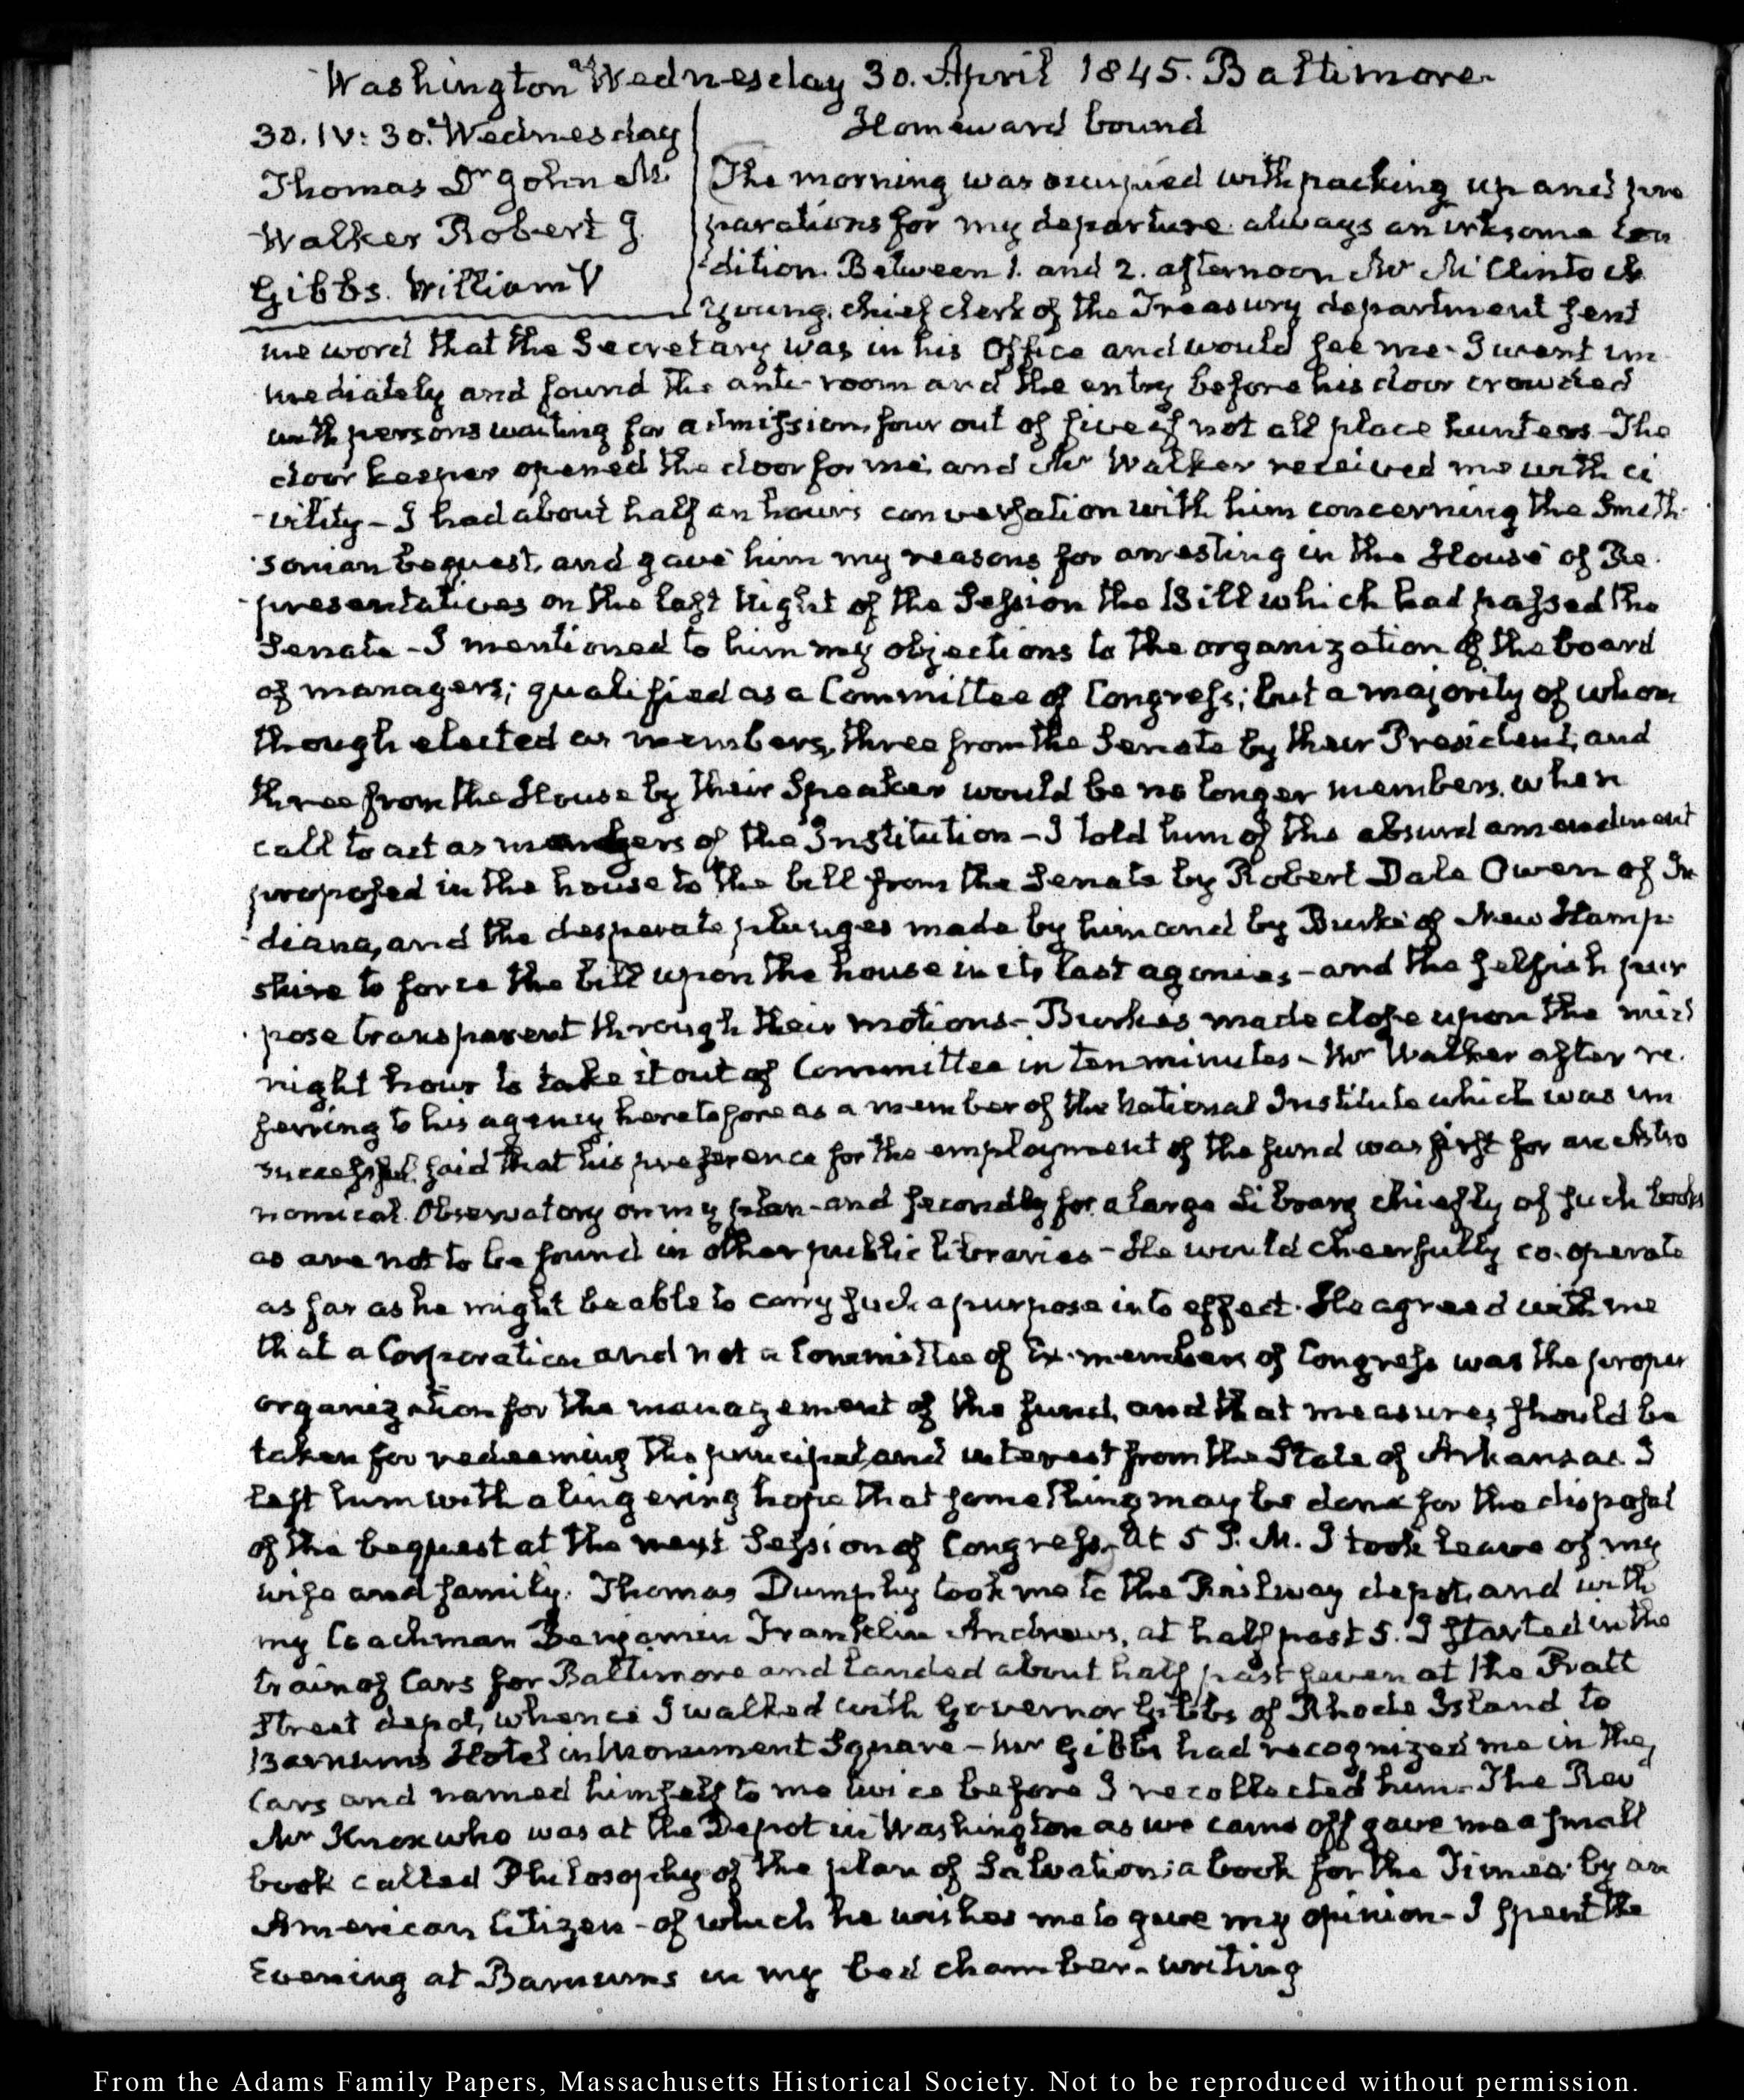 Washington and Wednesday 30. April 1845. Baltimore.
30. IV: 30. Wednesday
Thomas Dr John M.
Walker Robert J.
Gibbs. William V
Homeward bound
The morning was occupied with packing up and pre
parations for my departure always an irksome con
dition. Between 1. and 2. afternoon Mr McClintock
Young, chief clerk of the Treasury department sent
me word that the Secretary was in his Office and would see me. I went im
mediately and found the ante-room and the entry before his door crowded
with persons waiting for admission, four out of five if not all place hunters. The
door keeper opened the door for me, and Mr Walker received me with ci
vility - I had about half an hours conversation with him concerning the Smith
sonian bequest, and gave him my reasons for arresting in the House of Re
presentatives on the last night of the Session the Bill which had passed the
Senate - I mentioned to him my objections to the organization of the board
of managers; qualified as a Committee of Congress; but a majority of whom
though elected as members, three from the Senate by their President, and
three from the House by their Speaker would be no longer members, when
call to act as managers of the Institution - I told him of the absurd amendment
proposed in the house to the bill from the Senate by Robert Dale Owen of In
diana, and the desperate plunges made by him and by Burke of New Hamp
shire to force the bill upon the house in its last agonies - and the selfish pur
pose transparent through their motions - Burkes made close upon the mid
night hour to take it out of Committee in ten minutes - Mr Walker after re
ferring to his agency heretofore as a member of the National Institute which was un
successful, said that his preference for the employment of the fund was first for an Astro
nomical Observatory on my plan - and secondly for a large Library chiefly of such books
as are not to be found in other public libraries - He would cheerfully co-operate
as far as he might be able to carry such a purpose into effect. He agreed with me
that a Corporation and not a Committee of Ex-members of Congress was the proper
organization for the management of the fund, and that measures should be
taken for redeeming the principal and interest from the State of Arkansas. I
left him with a lingering hope that something may be done for the disposal
of the bequest at the next Session of Congress. At 5 P.M. I took leave of my
wife and family. Thomas Dumphy took me to the Railway depot, and with
my Coachman Benjamin Franklin Andrews, at half past 5. I started in the
train of Cars for Baltimore and landed about half past seven at the Pratt
Street depot, whence I walked with Governor Gibbs of Rhode Island to
Barnums Hotel in Monument Square - Mr Gibbs had recognized me in the
Cars and named himself to me twice before I recollected him. The Revd
Mr Knox who was at the Depot in Washington as we came off gave me a small
book called Philosophy of the plan of Salvation: a book for the Times: by an
American Citizen - of which he wishes me to give my opinion - I spent the
Evening at Barnums in my bed chamber - writing
From the Adams Family Papers, Massachusetts Historical Society. Not to be reproduced without permission.